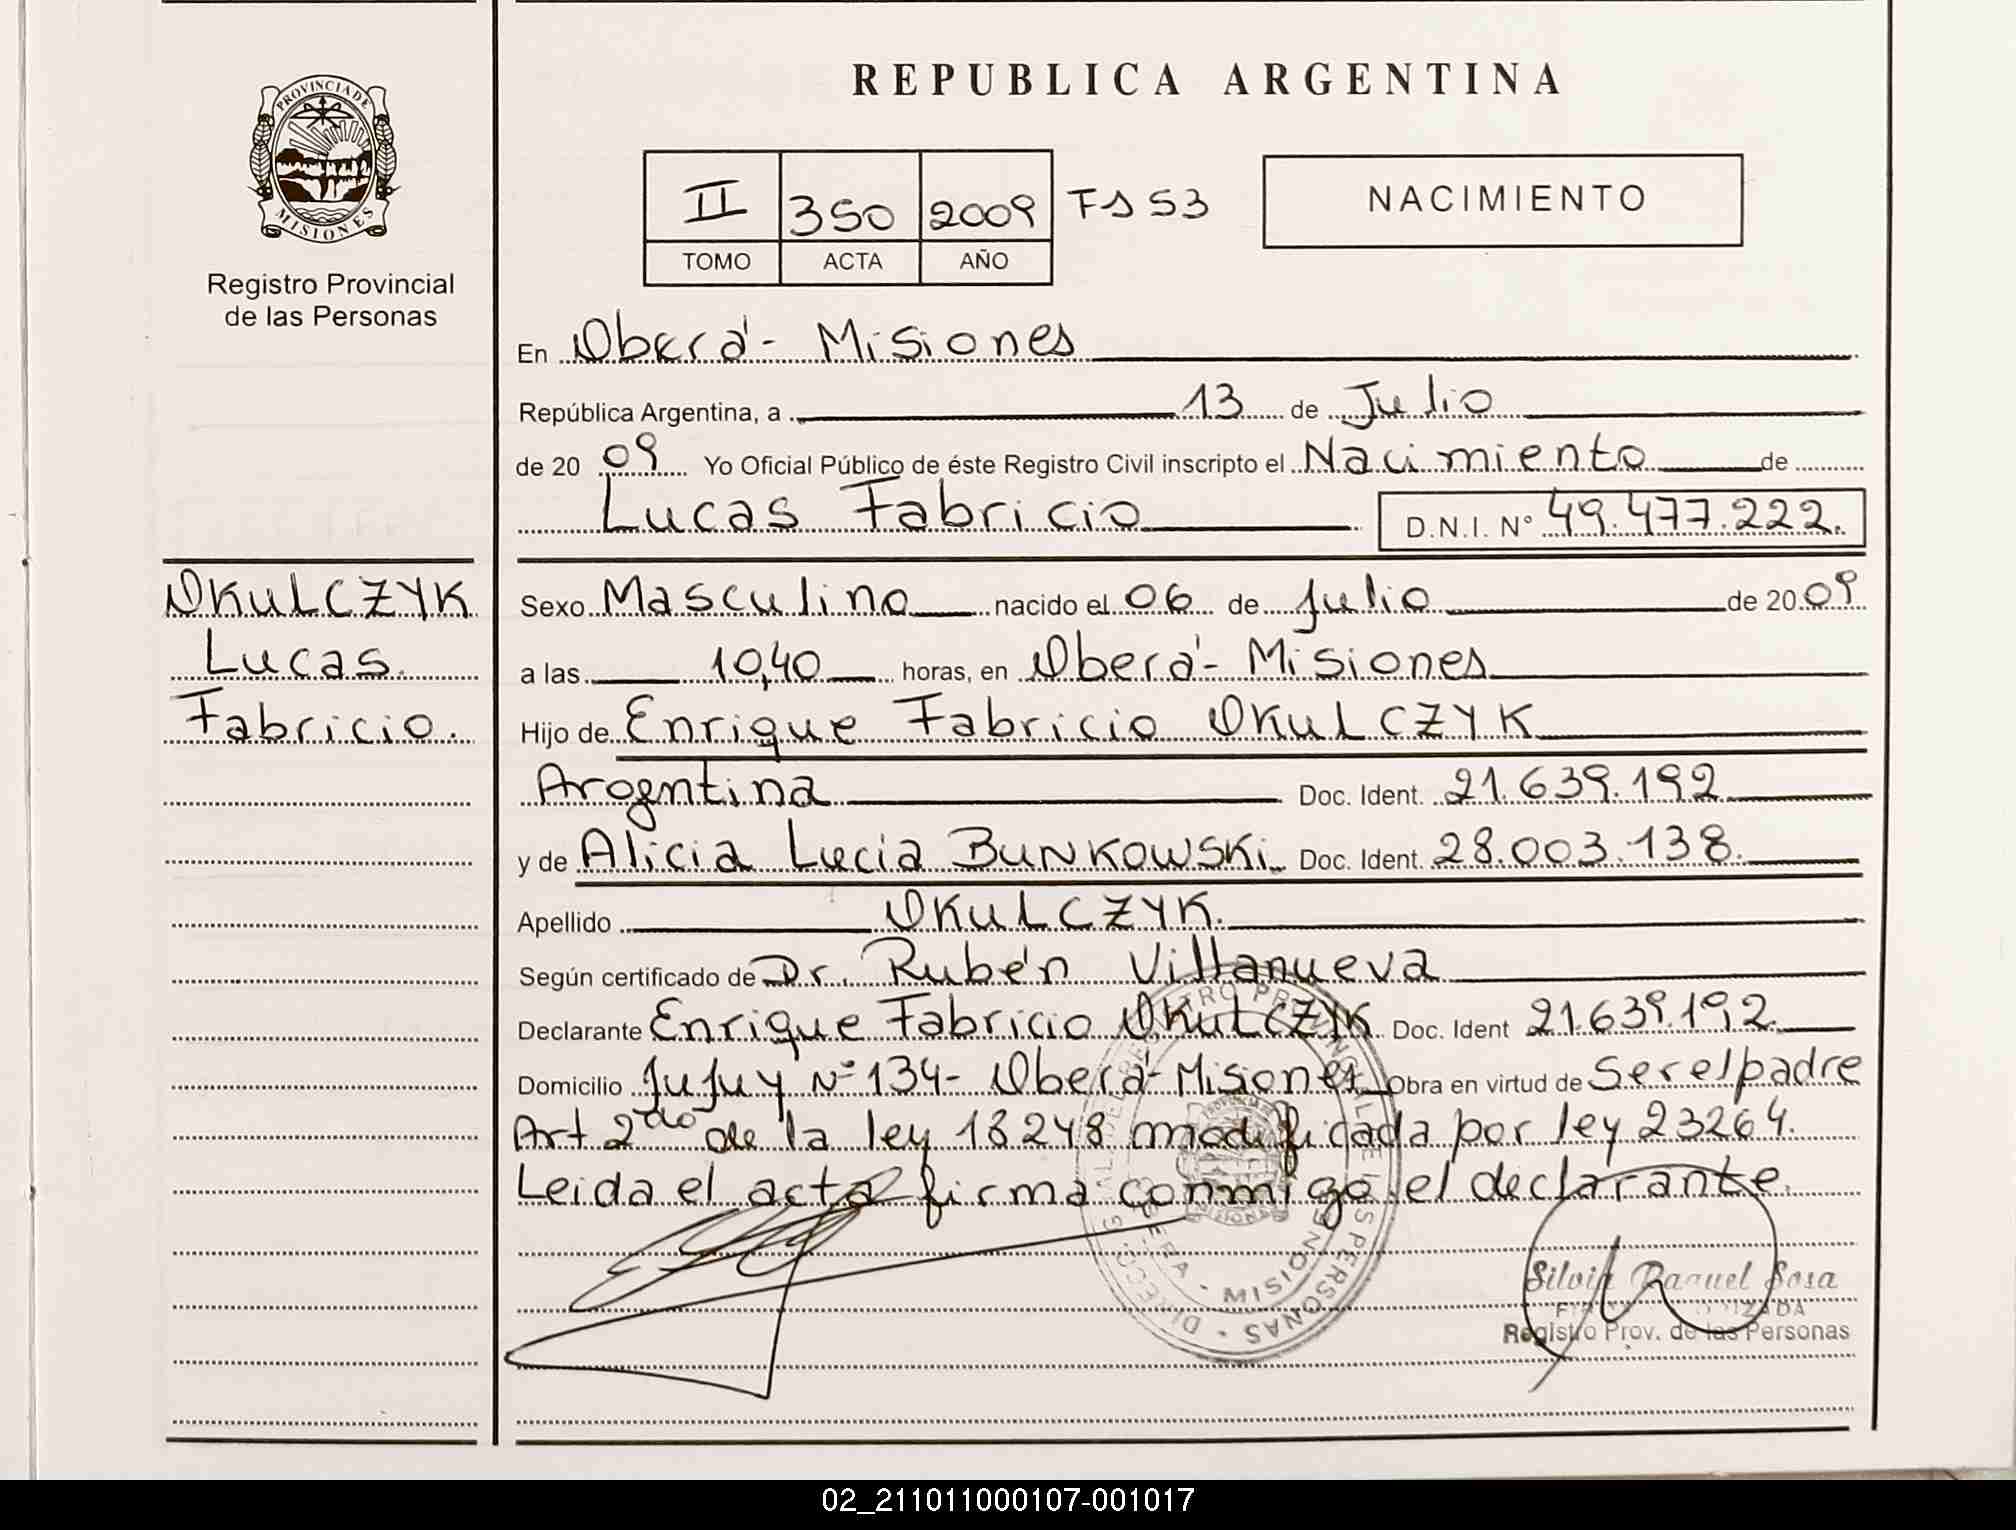 REPUBLICA ARGENTINA
PROVINCIA DE MISIONES
Registro Provincial
de las Personas
II 350 2009 Fs 53
TOMO ACTA AÑO
NACIMIENTO
En Oberá - Misiones
República Argentina, a 13 de Julio
de 20 09 Yo Oficial Público de éste Registro Civil inscripto el Nacimiento de
Lucas Fabricio D.N.I. N° 49.477.222.
OKULCZYK
Lucas
Fabricio.
Sexo Masculino nacido el 06 de Julio de 20 09
a las 10,40 horas, en Oberá - Misiones
Hijo de Enrique Fabricio OKULCZYK
Arogntina Doc. Ident. 21.639.192
y de Alicia Lucia BUNKOWSKI Doc. Ident. 28.003.138.
Apellido OKULCZYK.
Según certificado de Dr. Rubén Villanueva
Declarante Enrique Fabricio OKULCZYK Doc. Ident 21.639.192.
Domicilio Jujuy N° 134 - Oberá - Misiones Obra en virtud de Ser el padre
Art 2do de la ley 18248 modificada por ley 23264.
Leida el acta firma conmigo el declarante.
Silvia Raquel Sosa
Registro Prov. de las Personas
02_211011000107-001017